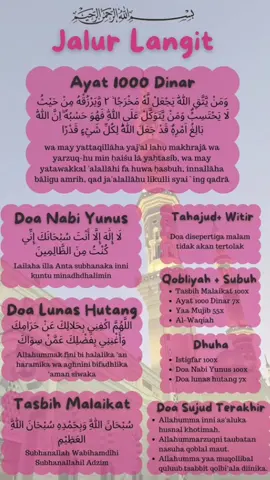 بِسْمِ اللَّهِ الرَّحْمَنِ الرَّحِيمِ
Jalur Langit
Ayat 1000 Dinar
وَمَنْ يَتَّقِ اللَّهَ يَجْعَلْ لَهُ مَخْرَجًا ۙ ٢ وَيَرْزُقْهُ مِنْ حَيْثُ
لَا يَحْتَسِبُ وَمَنْ يَتَوَكَّلْ عَلَى اللَّهِ فَهُوَ حَسْبُهُ إِنَّ اللَّهَ
بَالِغُ أَمْرِهِ قَدْ جَعَلَ اللَّهُ لِكُلِّ شَيْءٍ قَدْرًا
wa may yattaqillāha yaj'al lahụ makhrajā wa
yarzuq-hu min ḥaiṡu lā yaḥtasib, wa may
yatawakkal 'alallāhi fa huwa ḥasbuh, innallāha
bāligu amrih, qad ja'alallāhu likulli syai`ing qadrā
Doa Nabi Yunus
لَا إِلَهَ إِلَّا أَنْتَ سُبْحَانَكَ إِنِّي
كُنْتُ مِنَ الظَّالِمِينَ
Lailaha illa Anta subhanaka inni
kuntu minadhdhalimin
Tahajud+ Witir
Doa disepertiga malam
tidak akan tertolak
Qobliyah + Subuh
Tasbih Malaikat 100x
Ayat 1000 Dinar 7x
Yaa Mujib 55x
Al-Waqiah
Doa Lunas Hutang
اللَّهُمَّ اكْفِنِي بِحَلَالِكَ عَنْ حَرَامِكَ
وَأَغْنِنِي بِفَضْلِكَ عَمَّنْ سِوَاكَ
Allahummak fini bi halalika 'an
haramika wa aghnini bifadhlika
'aman siwaka
Dhuha
Istigfar 100x
Doa Nabi Yunus 100x
Doa lunas hutang 7x
Tasbih Malaikat
سُبْحَانَ اللَّهِ وَبِحَمْدِهِ سُبْحَانَ اللَّهِ
الْعَظِيْمِ
Subhanallah Wabihamdihi
Subhanallahil Adzim
Doa Sujud Terakhir
Allahumma inni as'aluka
husnul khotimah.
Allahummarzuqni taubatan
nasuha qoblal maut.
Allahumma yaa muqollibal
quluub tsabbit qolbi'ala diinika.